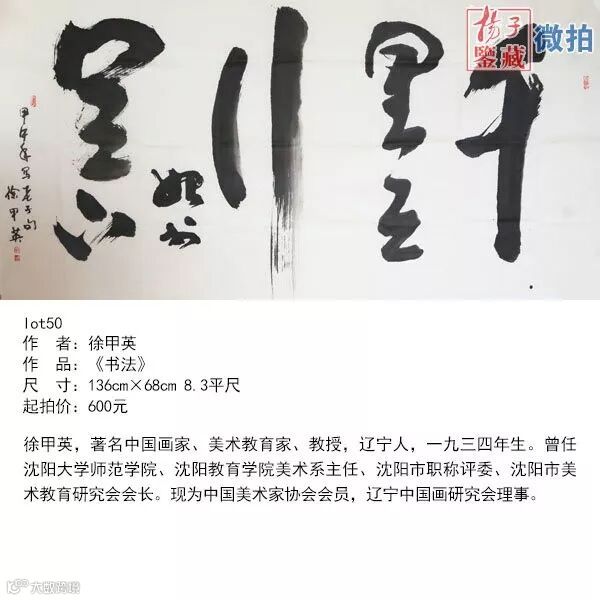 扬子
鑒藏
微拍
千
里之
行
始於
足下
甲午年写老子句
徐甲英
lot50
作 者：徐甲英
作 品：《书法》
尺 寸：136cm×68cm 8.3平尺
起拍价：600元
徐甲英，著名中国画家、美术教育家、教授，辽宁人，一九三四年生。曾任
沈阳大学师范学院、沈阳教育学院美术系主任、沈阳市职称评委、沈阳市美
术教育研究会会长。现为中国美术家协会会员，辽宁中国画研究会理事。
大数跨境